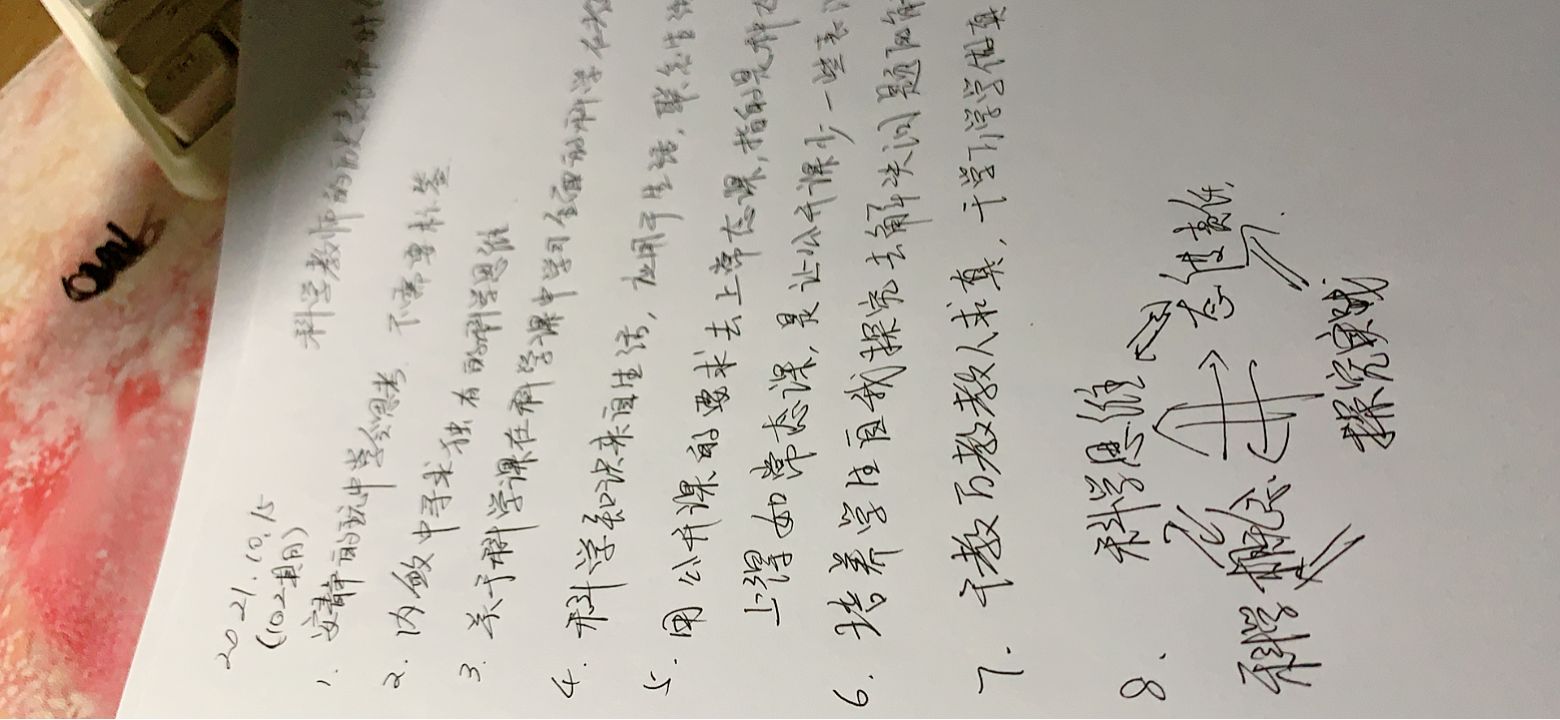 2021.10.15
(102期)
科学教师的历史
1. 安静的玩中学会思考
2. 内敛中寻求独有的科学思维 不需要标签
3. 关于科学课在科学课中学习全面的科学
4. 科学知识来自生活，应用于生活，联系生活
5. 用公开课的要求去上常态课，指的是
上得如常态课，是让公开课少一些表
6. 培养学生自我探究去解决问题的能
7. 千教万教教人求真，千学万学学做真
8. 科学思维
态度责任
科学概念
探究实践